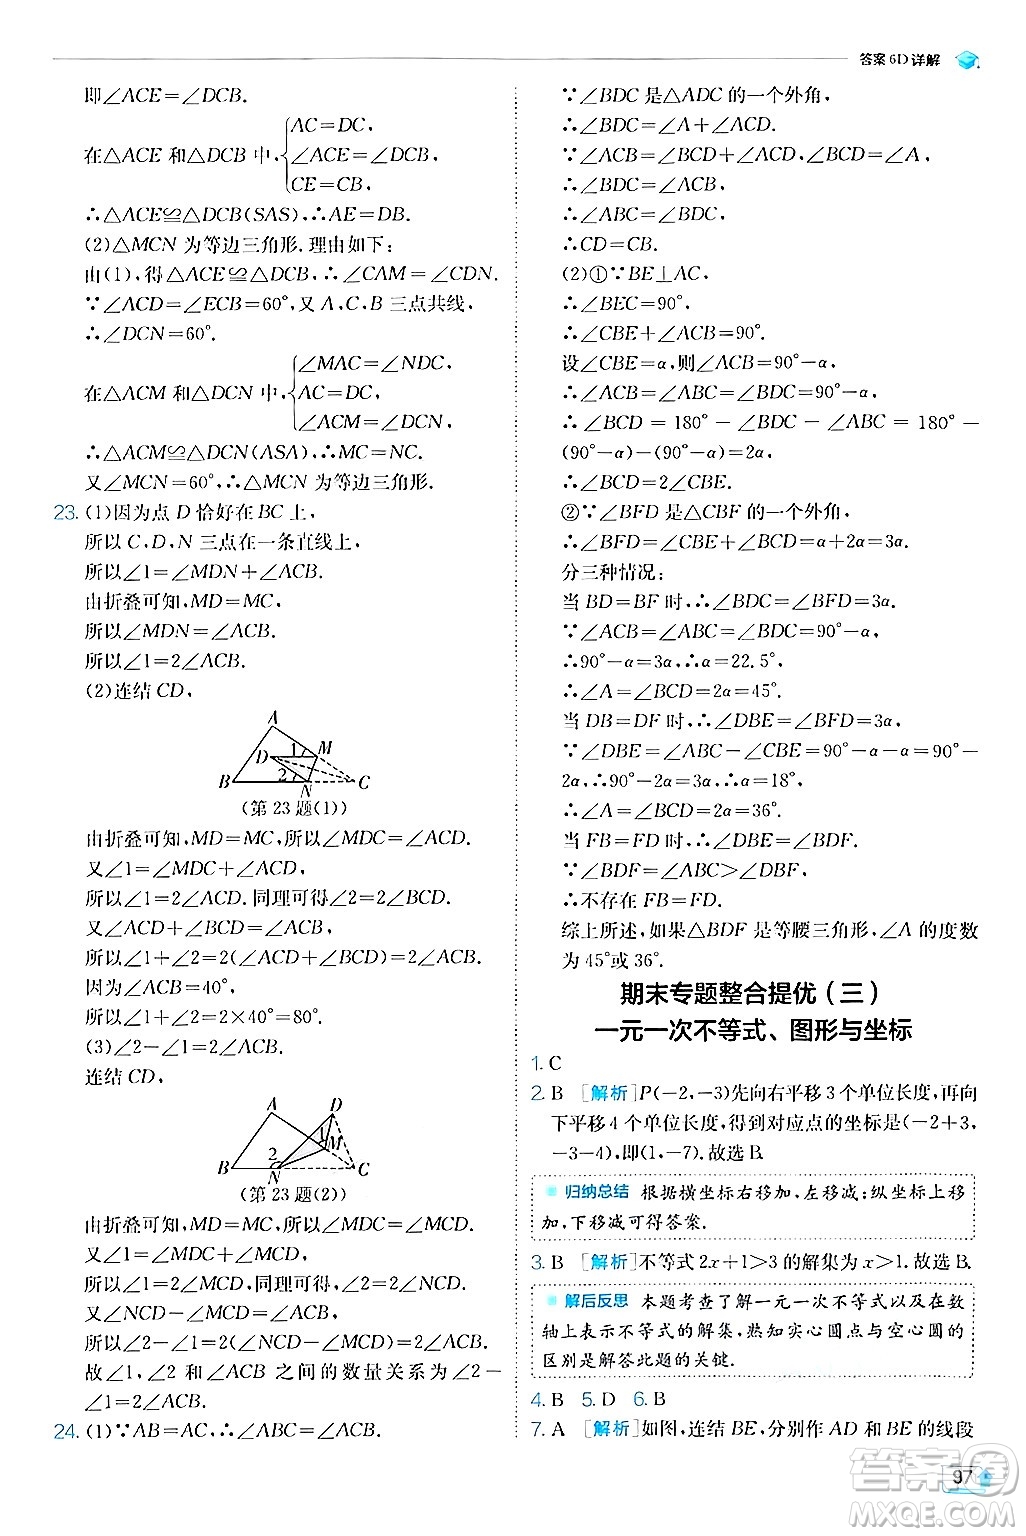 答案6D详解
即∠ACE=∠DCB.
在△ACE 和△DCB 中,{AC=DC,
∠ACE=∠DCB,
CE=CB,
∴△ACE≌△DCB(SAS),∴AE=DB.
(2)△MCN 为等边三角形.理由如下:
由(1),得△ACE≌△DCB,∴∠CAM=∠CDN.
∵∠ACD=∠ECB=60°,又 A,C,B 三点共线,
∴∠DCN=60°.
在△ACM 和△DCN 中,{∠MAC=∠NDC,
AC=DC,
∠ACM=∠DCN,
∴△ACM≌△DCN(ASA).∴MC=NC.
又∠MCN=60°,∴△MCN 为等边三角形.
23. (1)因为点 D 恰好在 BC 上,
所以 C,D,N 三点在一条直线上,
所以∠1=∠MDN+∠ACB.
由折叠可知,MD=MC,
所以∠MDN=∠ACB.
所以∠1=2∠ACB.
(2)连结CD,
A
D 1 M
B 2 N C
(第23题(1))
由折叠可知,MD=MC,所以∠MDC=∠ACD.
又∠1=∠MDC+∠ACD,
所以∠1=2∠ACD.同理可得∠2=2∠BCD.
又∠ACD+∠BCD=∠ACB,
所以∠1+∠2=2∠ACB.
因为∠ACB=40°,
所以∠1+∠2=2×40°=80°.
(3)∠2-∠1=2∠ACB.
连结CD,
A D
1 M
B 2 N C
(第23题(2))
由折叠可知,MD=MC,所以∠MDC=∠ACD.
又∠1=∠MDC+∠ACD,
所以∠1=2∠ACD.同理可得∠2=2∠NCD.
又∠NCD-∠ACD=∠ACB,
所以∠2-∠1=2(∠NCD-∠ACD)=2∠ACB.
故∠1,∠2 和∠ACB 之间的数量关系为∠2-
∠1=2∠ACB.
24. (1)∵AB=AC,∴∠ACB=∠ABC.
∵∠BDC 是△ADC 的一个外角,
∴∠BDC=∠A+∠ACD.
∵∠ACB=∠BCD+∠ACD,∠BCD=∠A,
∴∠BDC=∠ACB.
∴∠ABC=∠BDC.
∴CD=CB.
(2)①∵BE⊥AC,
∴∠BEC=90°.
∴∠CBE+∠ACB=90°.
设∠CBE=α,则∠ACB=90°-α,
∴∠ACB=∠ABC=∠BDC=90°-α.
∴∠BCD = 180° - ∠BDC - ∠ABC = 180° -
(90°-α)-(90°-α)=2α.
∴∠BCD=2∠CBE.
②∵∠BFD 是△CBF 的一个外角,
∴∠BFD=∠CBE+∠BCD=α+2α=3α.
分三种情况:
当 BD=BF 时,∴∠BDC=∠BFD=3α.
∵∠ACB=∠ABC=∠BDC=90°-α,
∴90°-α=3α,∴α=22.5°.
∴∠A=∠BCD=2α=45°.
当 DB=DF 时,∴∠DBE=∠BFD=3α,
∵∠DBE=∠ABC-∠CBE=90°-α-α=90°-
2α,∴90°-2α=3α,∴α=18°.
∴∠A=∠BCD=2α=36°.
当 FB=FD 时,∴∠DBE=∠BDF.
∵∠BDF=∠ABC>∠DBF,
∴不存在 FB=FD.
综上所述,如果△BDF 是等腰三角形,∠A 的度数
为 45°或 36°.
期末专题整合提优(三)
一元一次不等式、图形与坐标
1. C
2. B [解析]P(-2,-3)先向右平移3个单位长度,再向
下平移4个单位长度,得到对应点的坐标是(-2+3,
-3-4),即(1,-7).故选B.
归纳总结 根据横坐标右移加,左移减;纵坐标上移
加,下移减可得答案.
3. B [解析]不等式2x+1>3的解集为x>1.故选B.
解后反思 本题考查了解一元一次不等式以及在数
轴上表示不等式的解集,熟知实心圆点与空心圆的
区别是解答此题的关键.
4. B 5. D 6. B
7. A [解析]如图,连结 BE,分别作 AD 和 BE 的线段
97
答案圈
MXQE.COM